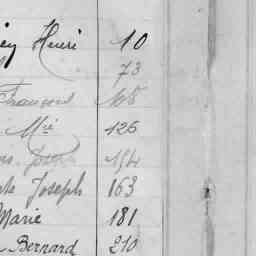 ey Henri 10
73
François 105
Mie 126
Joseph 154
te Joseph 163
Marie 181
Bernard 210